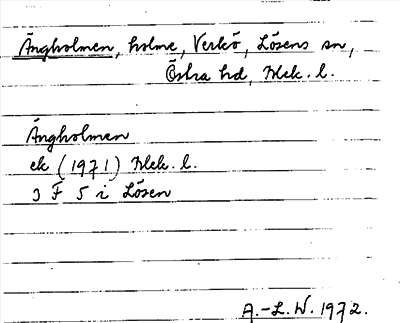 Ängholmen, holme, Verkö, Lösens sn,
Östra hd, Blek. l.
Ängholmen
ek (1971) Blek. l.
3 F 5 i Lösen
A.-L. W. 1972.